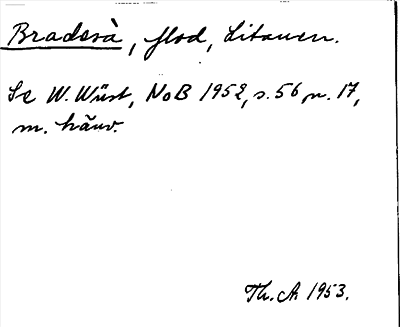 Bradesà, flod, Litauen.
Se W. Wüst, NoB 1952, s. 56, n. 17,
m. hänv.
Th. A 1953.